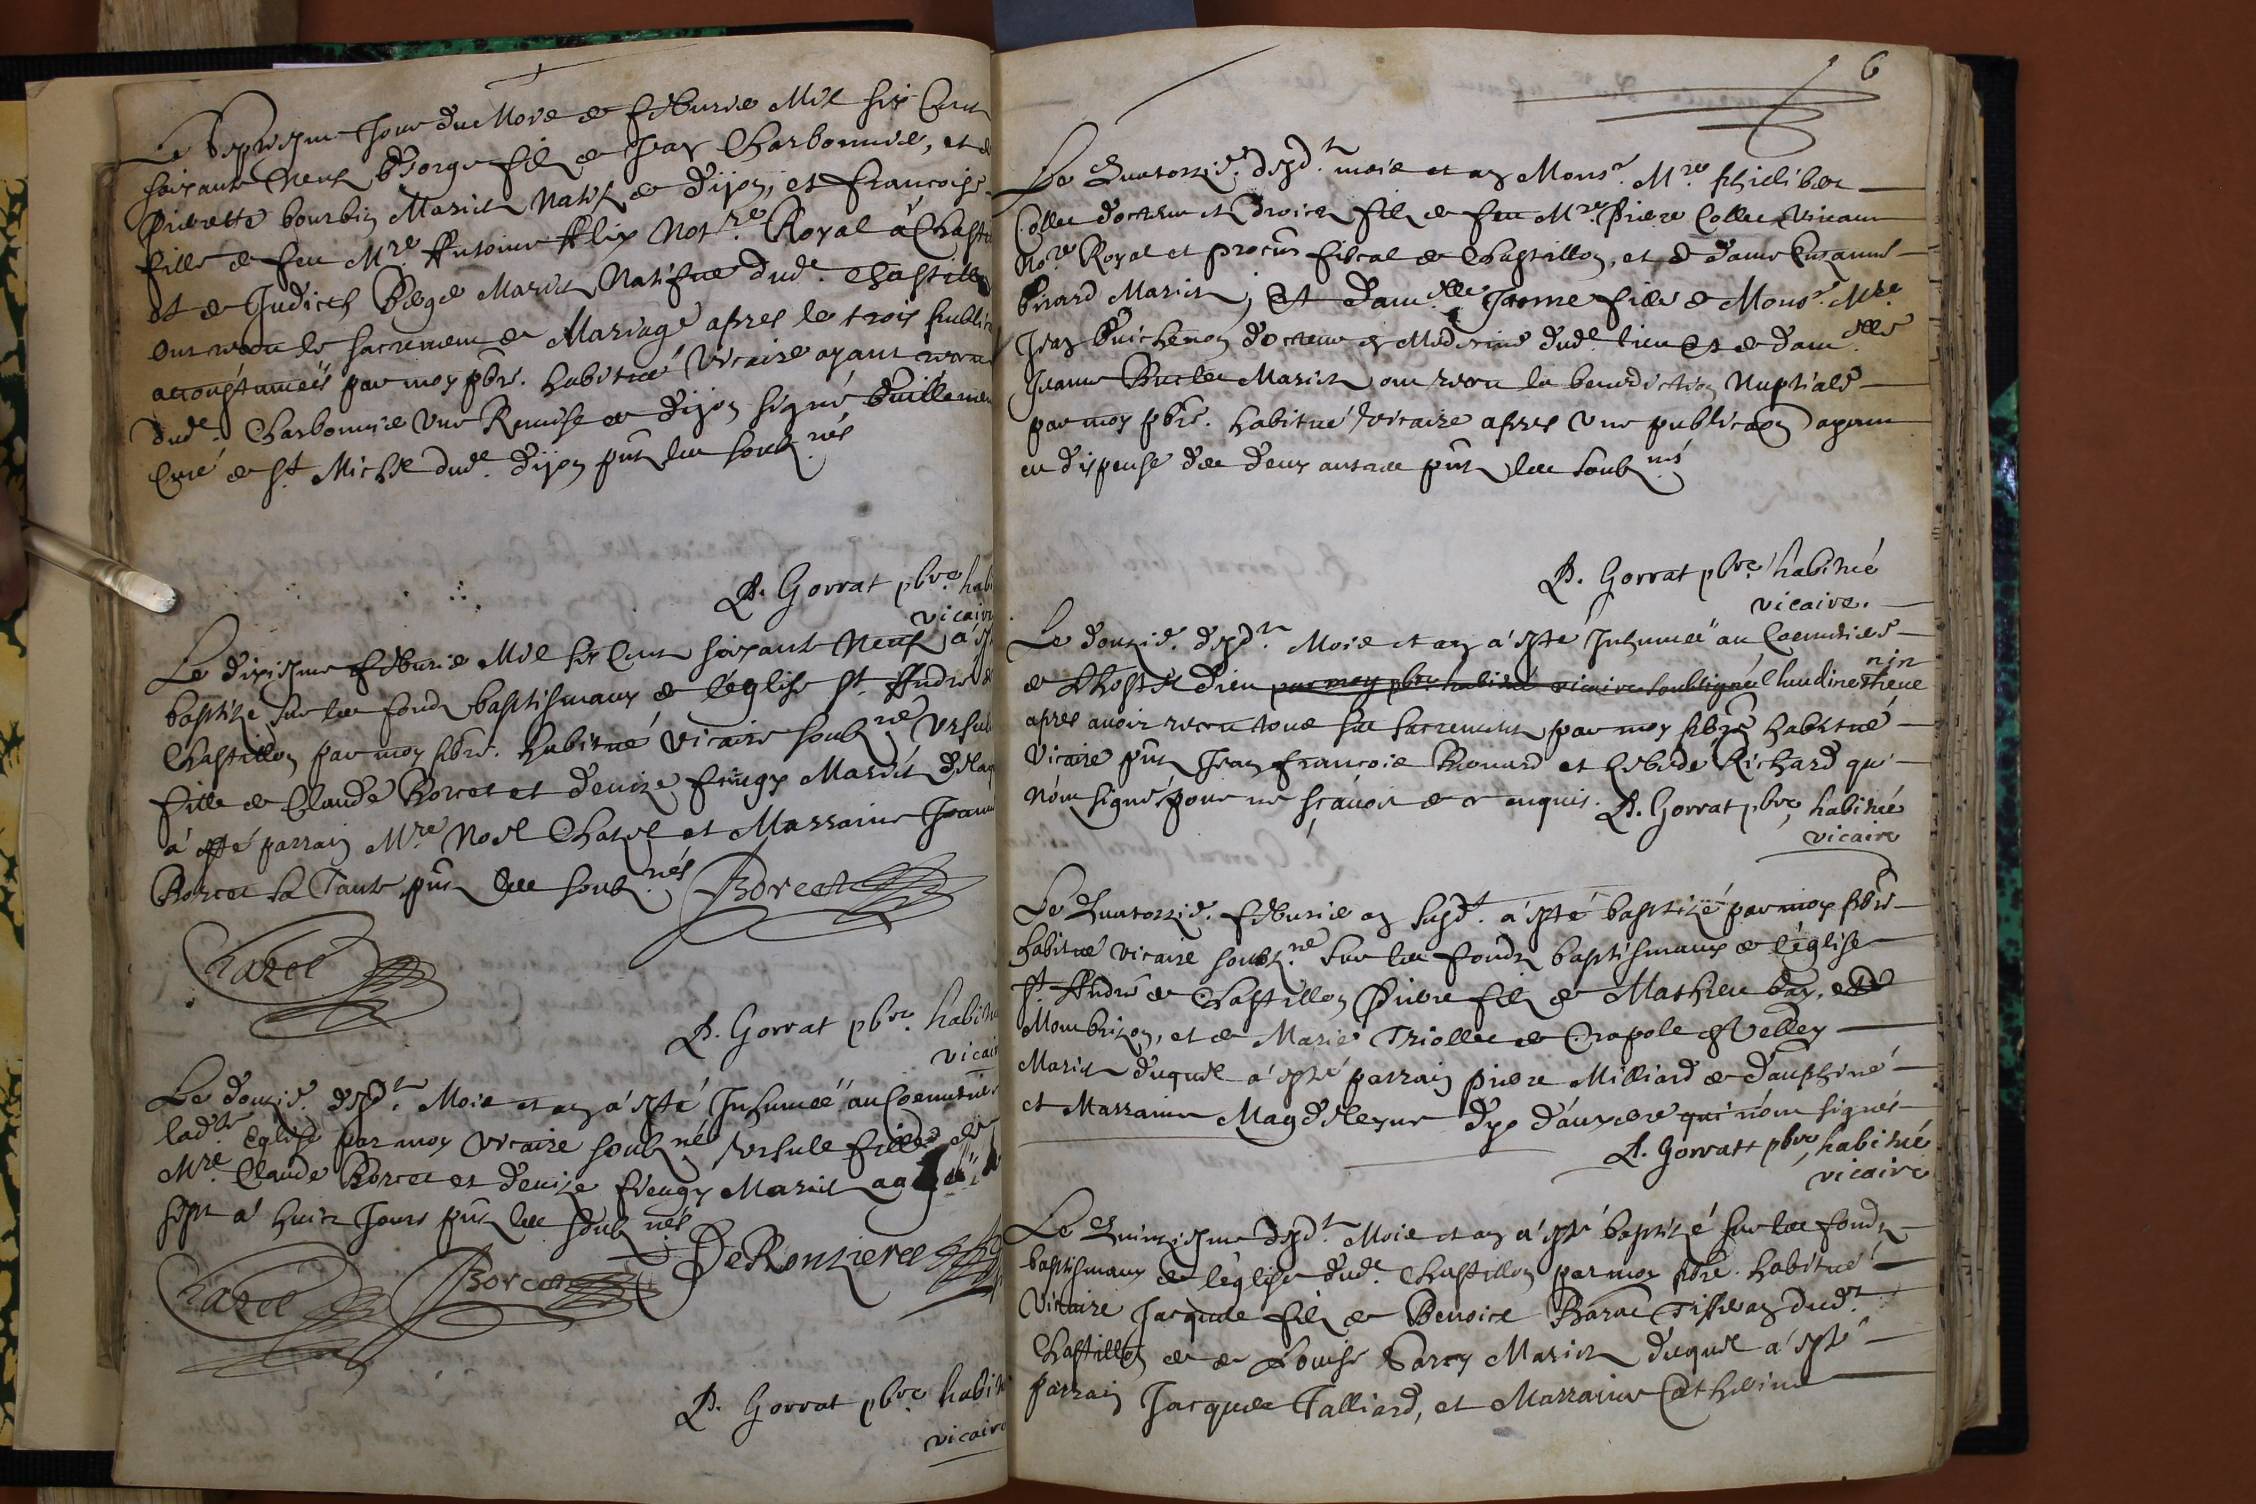 Le septiesme Jour du Mois de febvrier Mil six Cent
soixante Neuf George fils de Jean Charbonnier, et de
Pierrette bourbin Mariés Natif de dijon, et Francoise
fille de feu Mre Anthoine Alix Notre Royal a Chasti
et de Judicth Mariés Natifue dude Chastillo
ont receu le sacrement de Mariage apres les trois public
accoustumées par moy pbre. habitué Vicaire ayant receu
dude. Charbonnier une Remise de dijon signé Guillemen
Curé de St Michel dude. dijon pnts les soubznés
P. Gorrat pbre habi
vicaire
Le dixiesme febvrier Mil six Cent soixante Neuf, a es
baptize sur les fondz baptismaux de l'eglise St. André de
Chastillon par moy pbre. habitué Vicaire soubzné Ursule
fille de Claude Borcet et denize Mariés
a esté parrain Mre Noel Chazel et Marraine Jeanne
Borcet sa Tante pnts les soubznés Borcet
Chazel
P. Gorrat pbre. habitu
vicaire
Le douzie. desdt. Mois et an a esté Inhumée au Coemetiere
ladte Eglise par moy vicaire soubzné Ursule fille de
Mre. Claude Borcet et denize Mariés
sept a huict Jours pnts les soubznés
Chazel Borcet DeRonziere
P. Gorrat pbre habitu
vicaire
6
Le Quatorzie. desdt. mois et an Monsr. Mre philibert
Collet docteur et droicts fils de feu Mre Pierre Collet Vivant
Nore Royal et procur fiscal de Chastillon, et de dame Suzanne
Mariés, Et damlle Jeanne fille de Monsr. Mre
Jean Guichenon docteur en Medecine dude. lieu et de damlle
Jeanne Mariés ont receu la benediction Nuptiale
par moy pbre. habitué vicaire apres une publicaon ayant
eu dispense des deux autres pnts les soubznés
P. Gorrat pbre habitué
vicaire.
Le douzie. desdt. Mois et an a esté Inhumée au Coemetiere
nin
de LHostel dieu par moy pbre habitué vicaire soubsigné Claudine Theve
apres avoir receu tous ses sacrements par moy pbre habitué
Vicaire pnts Jean francois et Richard qui
nont signé pour ne sçavoir de ce enquis. P. Gorrat pbre, habitué
vicaire
Le Quatorzie. febvrier an susdt. a esté baptizé par moy pbre
habitué vicaire soubzné sur les fondz baptismaux de l'eglise
St. André de Chastillon Pierre fils de Mathieu
Mombrizon, et de Marie Triollet de Crapole
Mariés duquel a esté parrain pierre Milliard de dauphiné
et Marraine Magdeleyne d'auxerre qui nont signés
P. Gorratt pbre, habitué
vicaire
Le Quinziesme desdt. Mois et an a esté baptizé sur les fondz
baptismaux de l'eglise dude. Chastillon par moy pbre. habitué
Vicaire Jacques fils de Benoict Barac Tisseran dudt.
Chastillon et de Louise Mariés duquel a esté
parrain Jacques Talliard, et Marraine Catherine